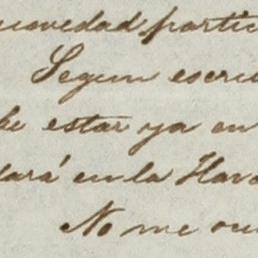 novedad partic
Segun escri
be estar ya en
lará en la Hava
No me ocu